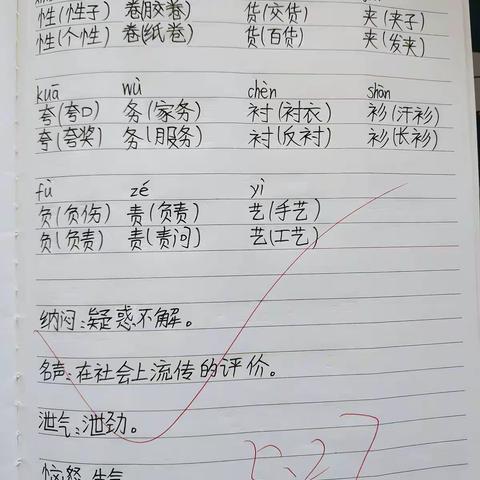 性(性子) 卷(胶卷) 货(交货) 夹(夹子)
性(个性) 卷(纸卷) 货(百货) 夹(发夹)
kuā wù chèn shān
夸(夸口) 务(家务) 衬(衬衣) 衫(汗衫)
夸(夸奖) 务(服务) 衬(反衬) 衫(长衫)
fù zé yì
负(负伤) 责(负责) 艺(手艺)
负(负责) 责(责问) 艺(工艺)
纳闷:疑惑不解。
名声:在社会上流传的评价。
泄气:泄劲。
恼怒:生气
5.27